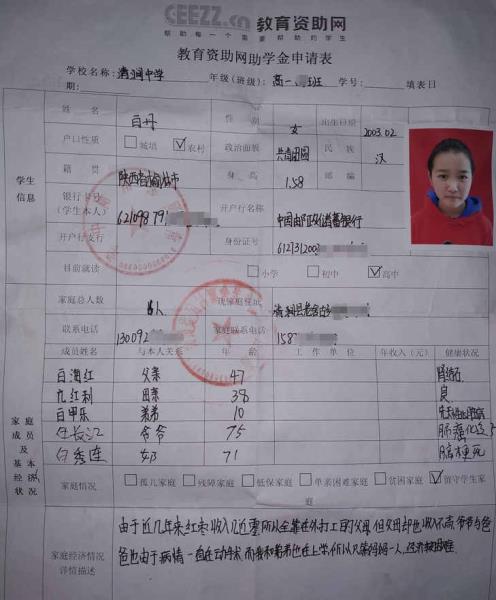 CEEZZ.cn 教育资助网
帮助每一个需要帮助的学生
教育资助网助学金申请表
学校名称：清涧中学 年级(班级)：高一 班 学号： 填表日
期：
姓名 白丹 性别 女 出生日期 2003.02
户口性质 城镇 农村 政治面貌 共青团员 民族 汉
学生
信息
籍贯 陕西省榆林市 身高 1.58 邮编
银行卡号
(学生本人) 621098791 开户行名称 中国邮政储蓄银行
开户行支行 身份证号 612731200
目前就读 小学 初中 高中
家庭总人数 人 现家庭住址 清涧县老舍古
联系电话 130092 家庭联系电话 158
成员姓名 与本人关系 年龄 工作单位 年收入(元) 健康状况
白海红 父亲 47 肾结石
九红利 母亲 38 良
白甲乐 弟弟 10
白长江 爷爷 75 肺癌化疗
白秀连 71 脑梗死
家庭
成员
及
基本
经济
状况
家庭情况 孤儿家庭 残障家庭 低保家庭 单亲困难家庭 贫困家庭 留守学生家
庭
家庭经济情况
详情描述
由于近几年来红枣收入几近零，所以全靠在外打工的父母，但父母却也收入不高，爷爷与爸
爸也由于病情一直在动手术，而我和弟弟也在上学，所以只靠妈妈一人，经济较困难．